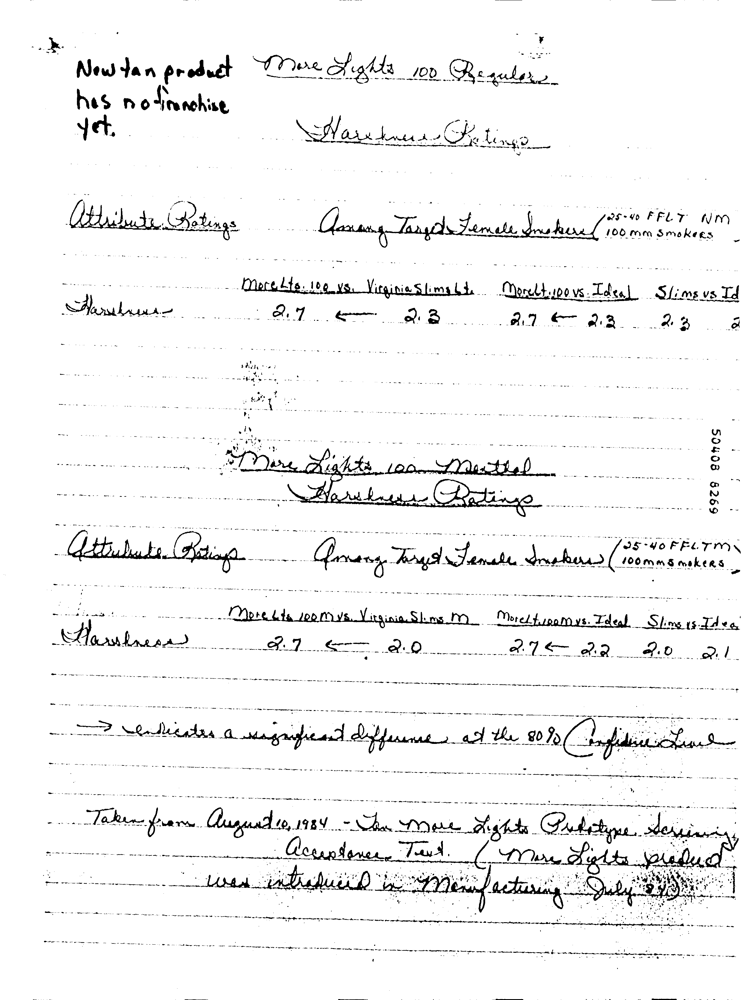 New tan product
has no franchise
yet.
More Lights 100 Regular
Harshness Ratings
Attribute Ratings Among Target Female Smokers (25-40 FFLT NM
100 mm Smokers
More Lts. 100 vs. Virginia Slims Lt. More Lt. 100 vs. Ideal Slims vs Id
Harshness 2.7 ← 2.3 2.7 ← 2.3 2.3 2
More Lights 100 Menthol
Harshness Ratings
50408 8269
Attribute Ratings Among Target Female Smokers (25-40 FFLTM
100mm Smokers
More Lts 100M vs. Virginia Slims M More Lt. 100M vs. Ideal Slims vs Idea
Harshness 2.7 ← 2.0 2.7 ← 2.2 2.0 2.1
→ indicates a significant difference at the 80% Confidence Level
Taken from August 10, 1984 - Tan More Lights Prototype Screening
Acceptance Test. (More Lights product
was introduced in Manufacturing July 84)